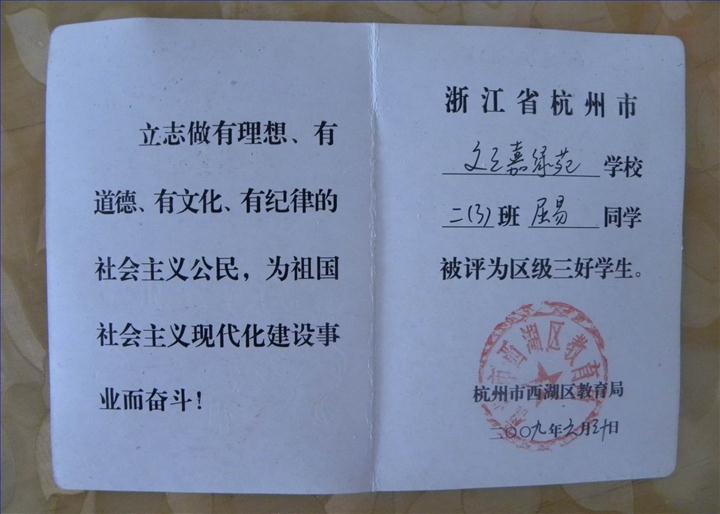 立志做有理想、有
道德、有文化、有纪律的
社会主义公民，为祖国
社会主义现代化建设事
业而奋斗！
浙江省杭州市
文三嘉绿苑 学校
二(3)班 屈易 同学
被评为区级三好学生。
市西湖区教育
杭州市西湖区教育局
二〇〇九年 月 日